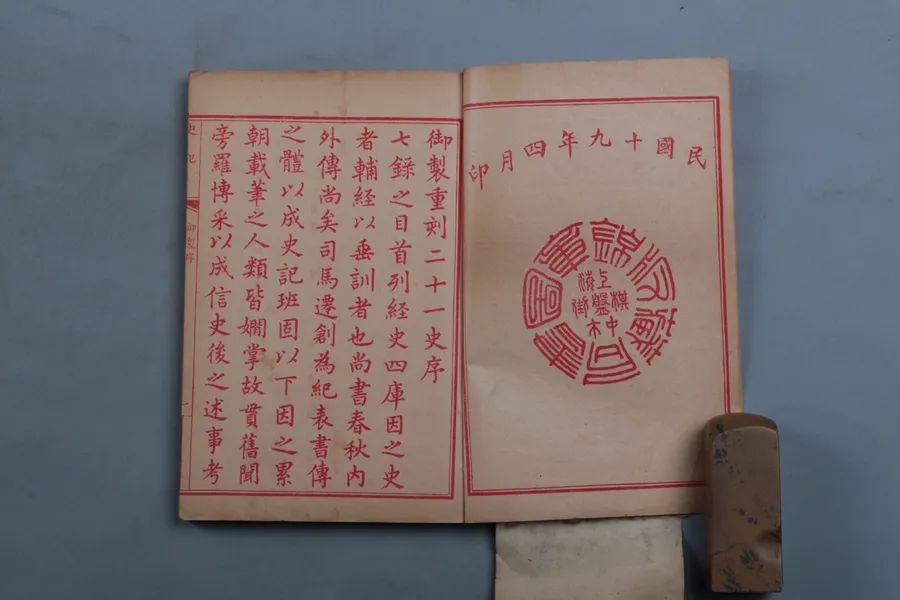 民國十九年四月印
錦章圖書局藏版
上海棋盤街中市
御製重刻二十一史序
七錄之目首列經史四庫因之史
者輔經以垂訓者也尚書春秋內
外傳尚矣司馬遷創為紀表書傳
之體以成史記班固以下因之累
朝載筆之人類皆嫺掌故貫舊聞
旁羅博采以成信史後之述事考
史記
御製序
一